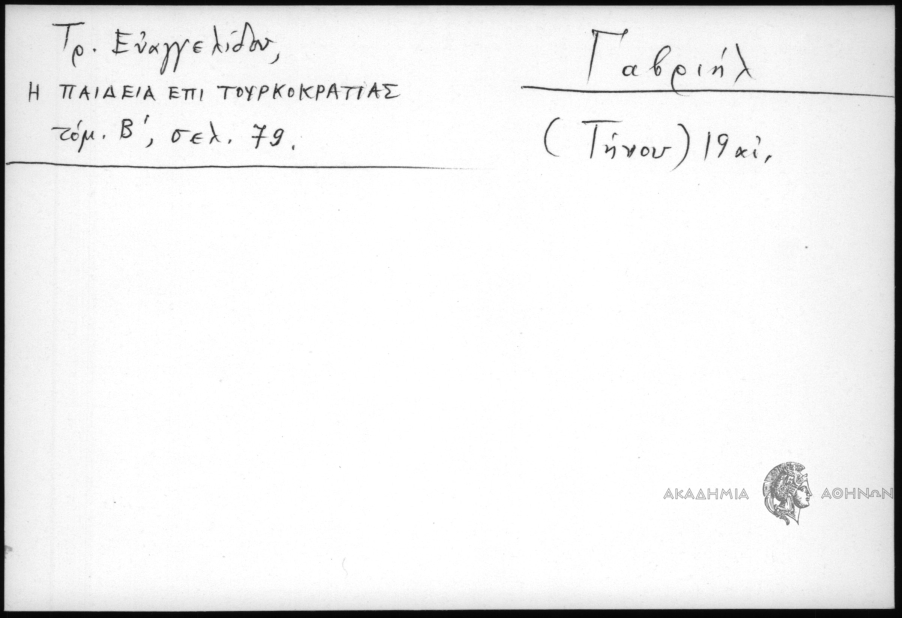 Τρ. Εὐαγγελίδου,
Η ΠΑΙΔΕΙΑ ΕΠΙ ΤΟΥΡΚΟΚΡΑΤΙΑΣ
τόμ. Β', σελ. 79.
Γαβριήλ
(Τήνου) 19 αἰ.
ΑΚΑΔΗΜΙΑ ΑΘΗΝΩΝ